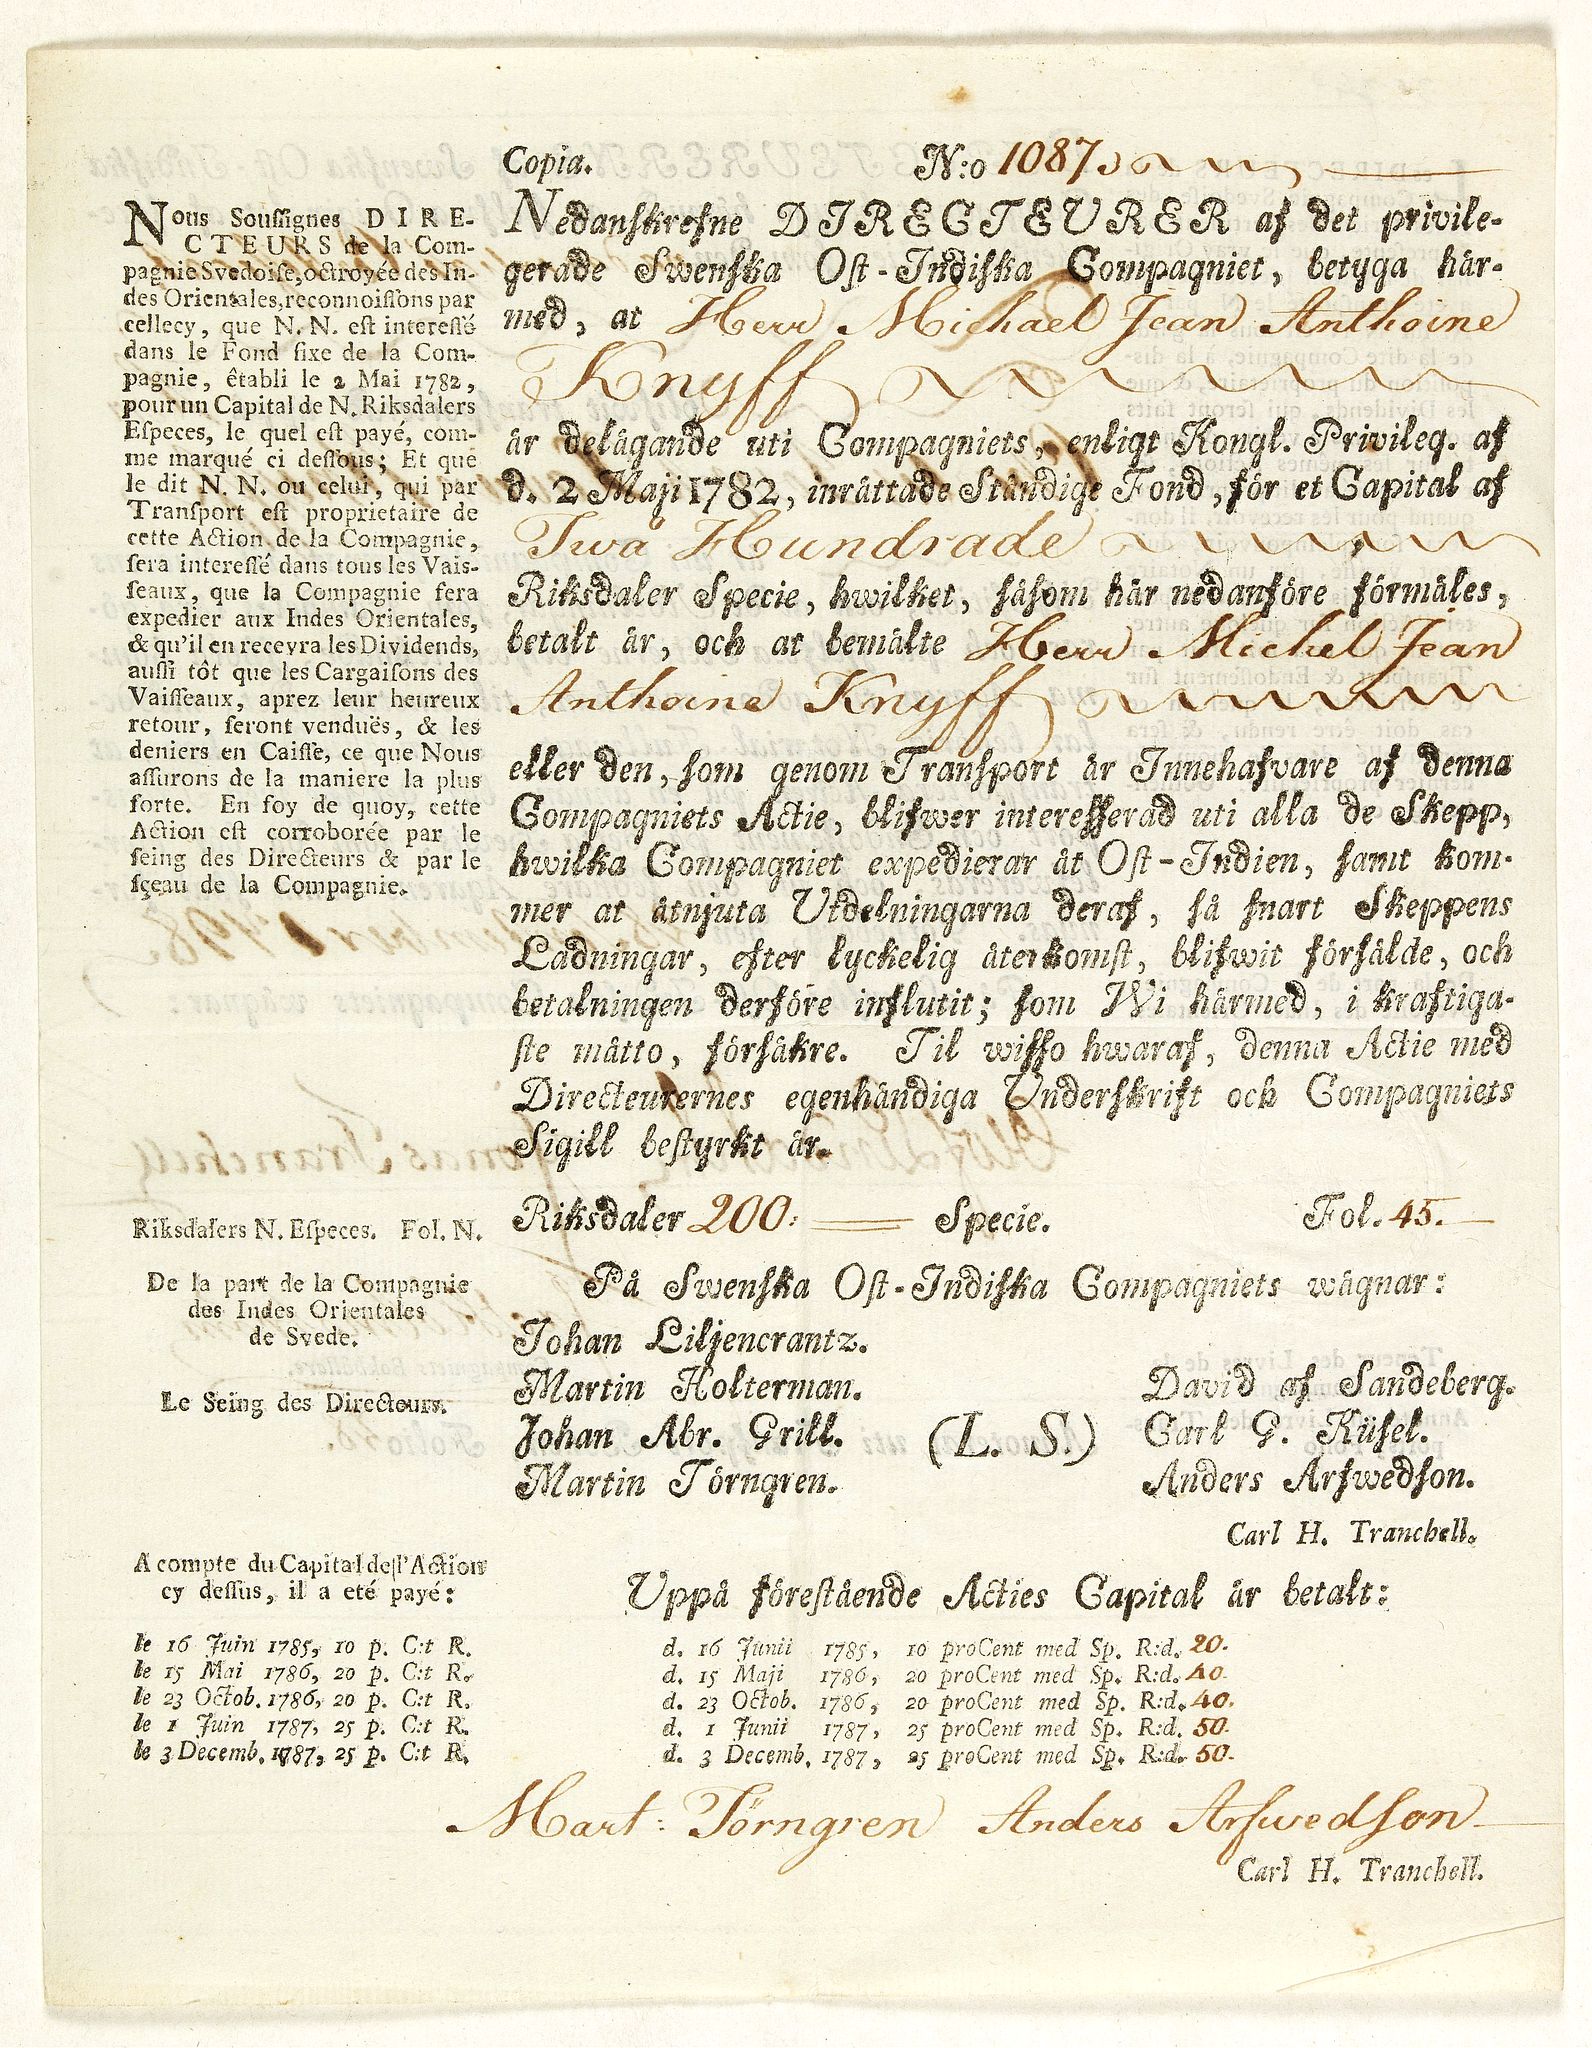 Copia. N:o 1087.
Nedanskrefne DIRECTEURER af det privile-
gerade Swenska Ost-Indiska Compagniet, betyga här-
med, at Herr Michael Jean Anthoine
Knyff
är delägande uti Compagniets, enligt Kongl. Privileg. af
d. 2 Maji 1782, inrättade Ständige Fond, för et Capital af
Twå Hundrade
Riksdaler Specie, hwilket, såsom här nedanföre förmäles,
betalt är, och at bemälte Herr Michel Jean
Anthoine Knyff
eller den, som genom Transport är Innehafvare af denna
Compagniets Actie, blifwer interesserad uti alla de Skepp,
hwilka Compagniet expedierar åt Ost-Indien, samt kom-
mer at åtnjuta Utdelningarna deraf, så snart Skeppens
Ladningar, efter lyckelig återkomst, blifwit försålde, och
betalningen derföre influtit; som Wi härmed, i kraftiga-
ste måtto, försäkre. Til wisso hwaraf, denna Actie med
Directeurernes egenhändiga Underskrift och Compagniets
Sigill bestyrkt är.
Riksdaler 200: Specie. Fol. 45.
På Swenska Ost-Indiska Compagniets wägnar:
Johan Liljencrantz.
Martin Holterman. David af Sandeberg.
Johan Abr. Grill. (L. S.) Carl G. Küsel.
Martin Törngren. Anders Arfwedson.
Carl H. Tranchell.
Uppå förestående Acties Capital är betalt:
d. 16 Junii 1785, 10 proCent med Sp. R:d. 20.
d. 15 Maji 1786, 20 proCent med Sp. R:d. 40.
d. 23 Octob. 1786, 20 proCent med Sp. R:d. 40.
d. 1 Junii 1787, 25 proCent med Sp. R:d. 50.
d. 3 Decemb. 1787, 25 proCent med Sp. R:d. 50.
Mart: Törngren Anders Arfwedson
Carl H. Tranchell.
Nous Soussignes DIRE-
CTEURS de la Com-
pagnie Svedoise, octroyée des In-
des Orientales, reconnoissons par
cellecy, que N. N. est interessé
dans le Fond fixe de la Com-
pagnie, êtabli le 2 Mai 1782,
pour un Capital de N. Riksdalers
Especes, le quel est payé, com-
me marqué ci dessous; Et que
le dit N. N. ou celui, qui par
Transport est proprietaire de
cette Action de la Compagnie,
sera interessé dans tous les Vais-
seaux, que la Compagnie fera
expedier aux Indes Orientales,
& qu'il en recevra les Dividends,
aussi tôt que les Cargaisons des
Vaisseaux, aprez leur heureux
retour, seront venduës, & les
deniers en Caisse, ce que Nous
assurons de la maniere la plus
forte. En foy de quoy, cette
Action est corroborée par le
seing des Directeurs & par le
sçeau de la Compagnie.
Riksdalers N. Especes. Fol. N.
De la part de la Compagnie
des Indes Orientales
de Svede.
Le Seing des Directeurs.
A compte du Capital de l'Action
cy dessus, il a eté payé:
le 16 Juin 1785, 10 p. C:t R.
le 15 Mai 1786, 20 p. C:t R.
le 23 Octob. 1786, 20 p. C:t R.
le 1 Juin 1787, 25 p. C:t R.
le 3 Decemb. 1787, 25 p. C:t R.